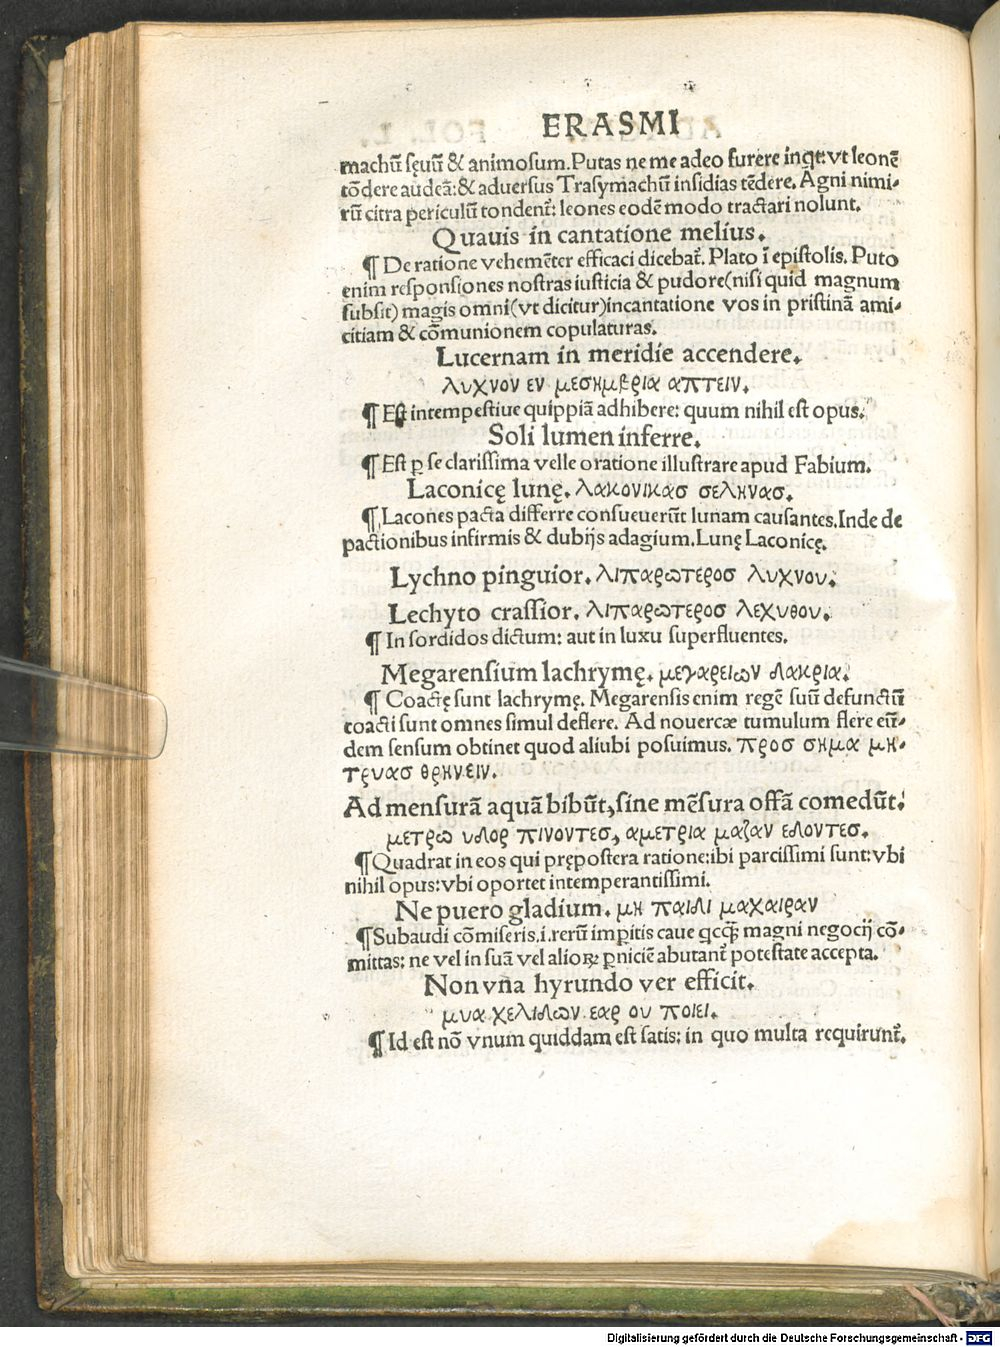 ERASMI
machū sęuū & animosum. Putas ne me adeo furere inqt: vt leonē
tōdere audeā: & aduersus Trasymachū insidias tēdere. Agni nimi-
rū citra periculū tondent᷑: leones eodē modo tractari nolunt.
Quauis in cantatione melius.
¶ De ratione vehemēter efficaci dicebat᷑. Plato ī epistolis. Puto
enim responsiones nostras iusticia & pudore (nisi quid magnum
subsit) magis omni (vt dicitur) incantatione vos in pristinā ami-
citiam & cōmunionem copulaturas.
Lucernam in meridie accendere.
λυχνον εν μεσημβρια απτειν.
¶ Est intempestiue quippiā adhibere: quum nihil est opus.
Soli lumen inferre.
¶ Est ꝑ se clarissima velle oratione illustrare apud Fabium.
Laconicę lunę. λακονικασ σεληνασ.
¶ Lacones pacta differre consueuerūt lunam causantes. Inde de
pactionibus infirmis & dubijs adagium. Lunę Laconicę.
Lychno pinguior. λιπαρωτεροσ λυχνου.
Lechyto crassior. λιπαρωτεροσ λεχυθου.
¶ In sordidos dictum: aut in luxu superfluentes.
Megarensium lachrymę. μεγαρειων δακρια.
¶ Coactę sunt lachrymę. Megarensis enim regē suū defunctū
coacti sunt omnes simul deflere. Ad nouercæ tumulum flere eū-
dem sensum obtinet quod aliubi posuimus. προσ σημα μη-
τρυασ θρηνειν.
Ad mensurā aquā bibūt, sine mēsura offā comedūt.
μετρω υδορ πινοντεσ, αμετρια μαζαν εδοντεσ.
¶ Quadrat in eos qui prępostera ratione: ibi parcissimi sunt: vbi
nihil opus: vbi oportet intemperantissimi.
Ne puero gladium. μη παιδι μαχαιραν
¶ Subaudi cōmiseris. i. rerū imꝑitis caue qcq̄ magni negocij cō-
mittas: ne vel in suā vel alioꝝ ꝑniciē abutant᷑ potestate accepta.
Non vn̄a hyrundo ver efficit.
μυα χελιδων εαρ ου ποιει.
¶ Id est nō vnum quiddam est satis: in quo multa requirunt᷑.
Digitalisierung gefördert durch die Deutsche Forschungsgemeinschaft - DFG